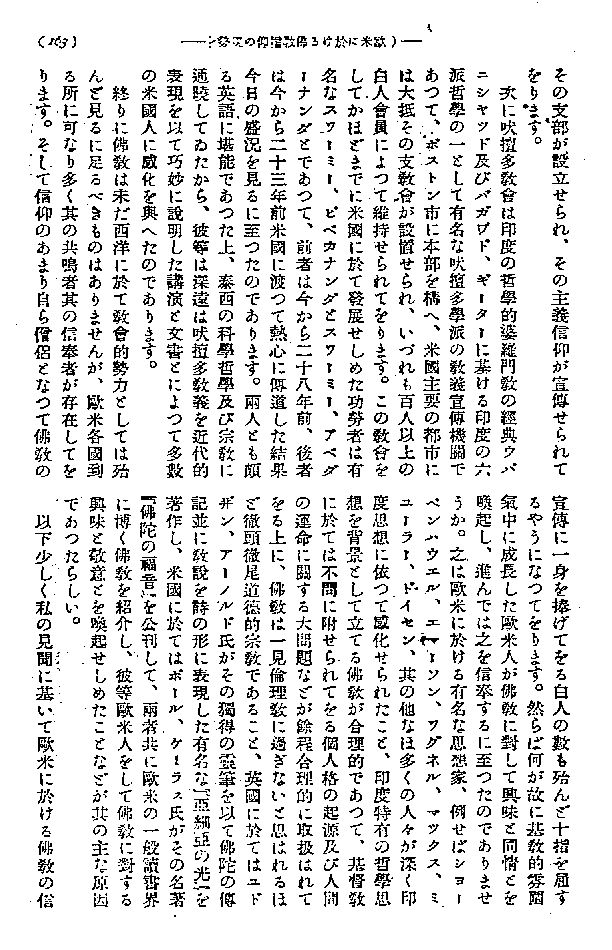 (163)
――と勢現の傳宣敎佛るけ於に米歐(――
その支部が設立せられ、その主義信仰が宣傳せられて
をります。
次に吠擅多敎會は印度の哲學的婆羅門敎の經典ウパ
ニシャッド及びバガワド、ギーターに基ける印度の六
派哲學の一として有名な吠擅多學派の敎義宣傳機關で
あつて、ボストン市に本部を構へ、米國主要の都市に
は大抵その支敎會が設置せられ、いづれも百人以上の
白人會員によつて維持せられてをります。この敎會を
してかほどまでに米國に於て發展せしめた功勞者は有
名なスワーミー、ビベカナンダとスワーミー、アベダ
ーナンダとであつて、前者は今から二十八年前、後者
は今から二十三年前米國に渡つて熱心に傳道した結果
今日の盛況を見るに至つたのであります。兩人とも頗
る英語に堪能であつた上、泰西の科學哲學及び宗敎に
通曉してゐたから、彼等は深遠な吠擅多敎義を近代的
表現を以て巧妙に說明した講演と文書とによつて多數
の米國人に感化を與へたのであります。
終りに佛敎は未だ西洋に於て敎會的勢力としては殆
んど見るに足るべきものはありませんが、歐米各國到
る所に可なり多く其の共鳴者其の信奉者が存在してを
ります。そして信仰のあまり自ら僧侶となつて佛敎の
宣傳に一身を捧げてをる白人の數も殆んど十指を屈す
るやうになつてをります。然らば何が故に基敎的雰圍
氣中に成長した歐米人が佛敎に對して興味と同情とを
喚起し、進んでは之を信奉するに至つたのでありませ
うか。之は歐米に於ける有名な思想家、例せばショー
ペンハウエル、エマーソン、ワグネル、マックス、ミ
ューラー、ドイセン、其の他なほ多くの人々が深く印
度思想に依つて感化せられたこと、印度特有の哲學思
想を背景として立てる佛敎が合理的であつて、基督敎
に於ては不問に附せられてをる個人格の起源及び人間
の運命に關する大問題などが餘程合理的に取扱はれて
をる上に、佛敎は一見倫理敎に過ぎないと思はれるほ
ど徹頭徹尾道德的宗敎であること、英國に於てはエド
ヰン、アーノルド氏がその獨得の靈筆を以て佛陀の傳
記並に敎說を詩の形に表現した有名な『亞細亞の光』を
著作し、米國に於てはポール、ケーラス氏がその名著
『佛陀の福音』を公刊して、兩者共に歐米の一般讀書界
に博く佛敎を紹介し、彼等歐米人をして佛敎に對する
興味と敬意とを喚起せしめたことなどが其の主な原因
であつたらしい。
以下少しく私の見聞に基いて歐米に於ける佛敎の信